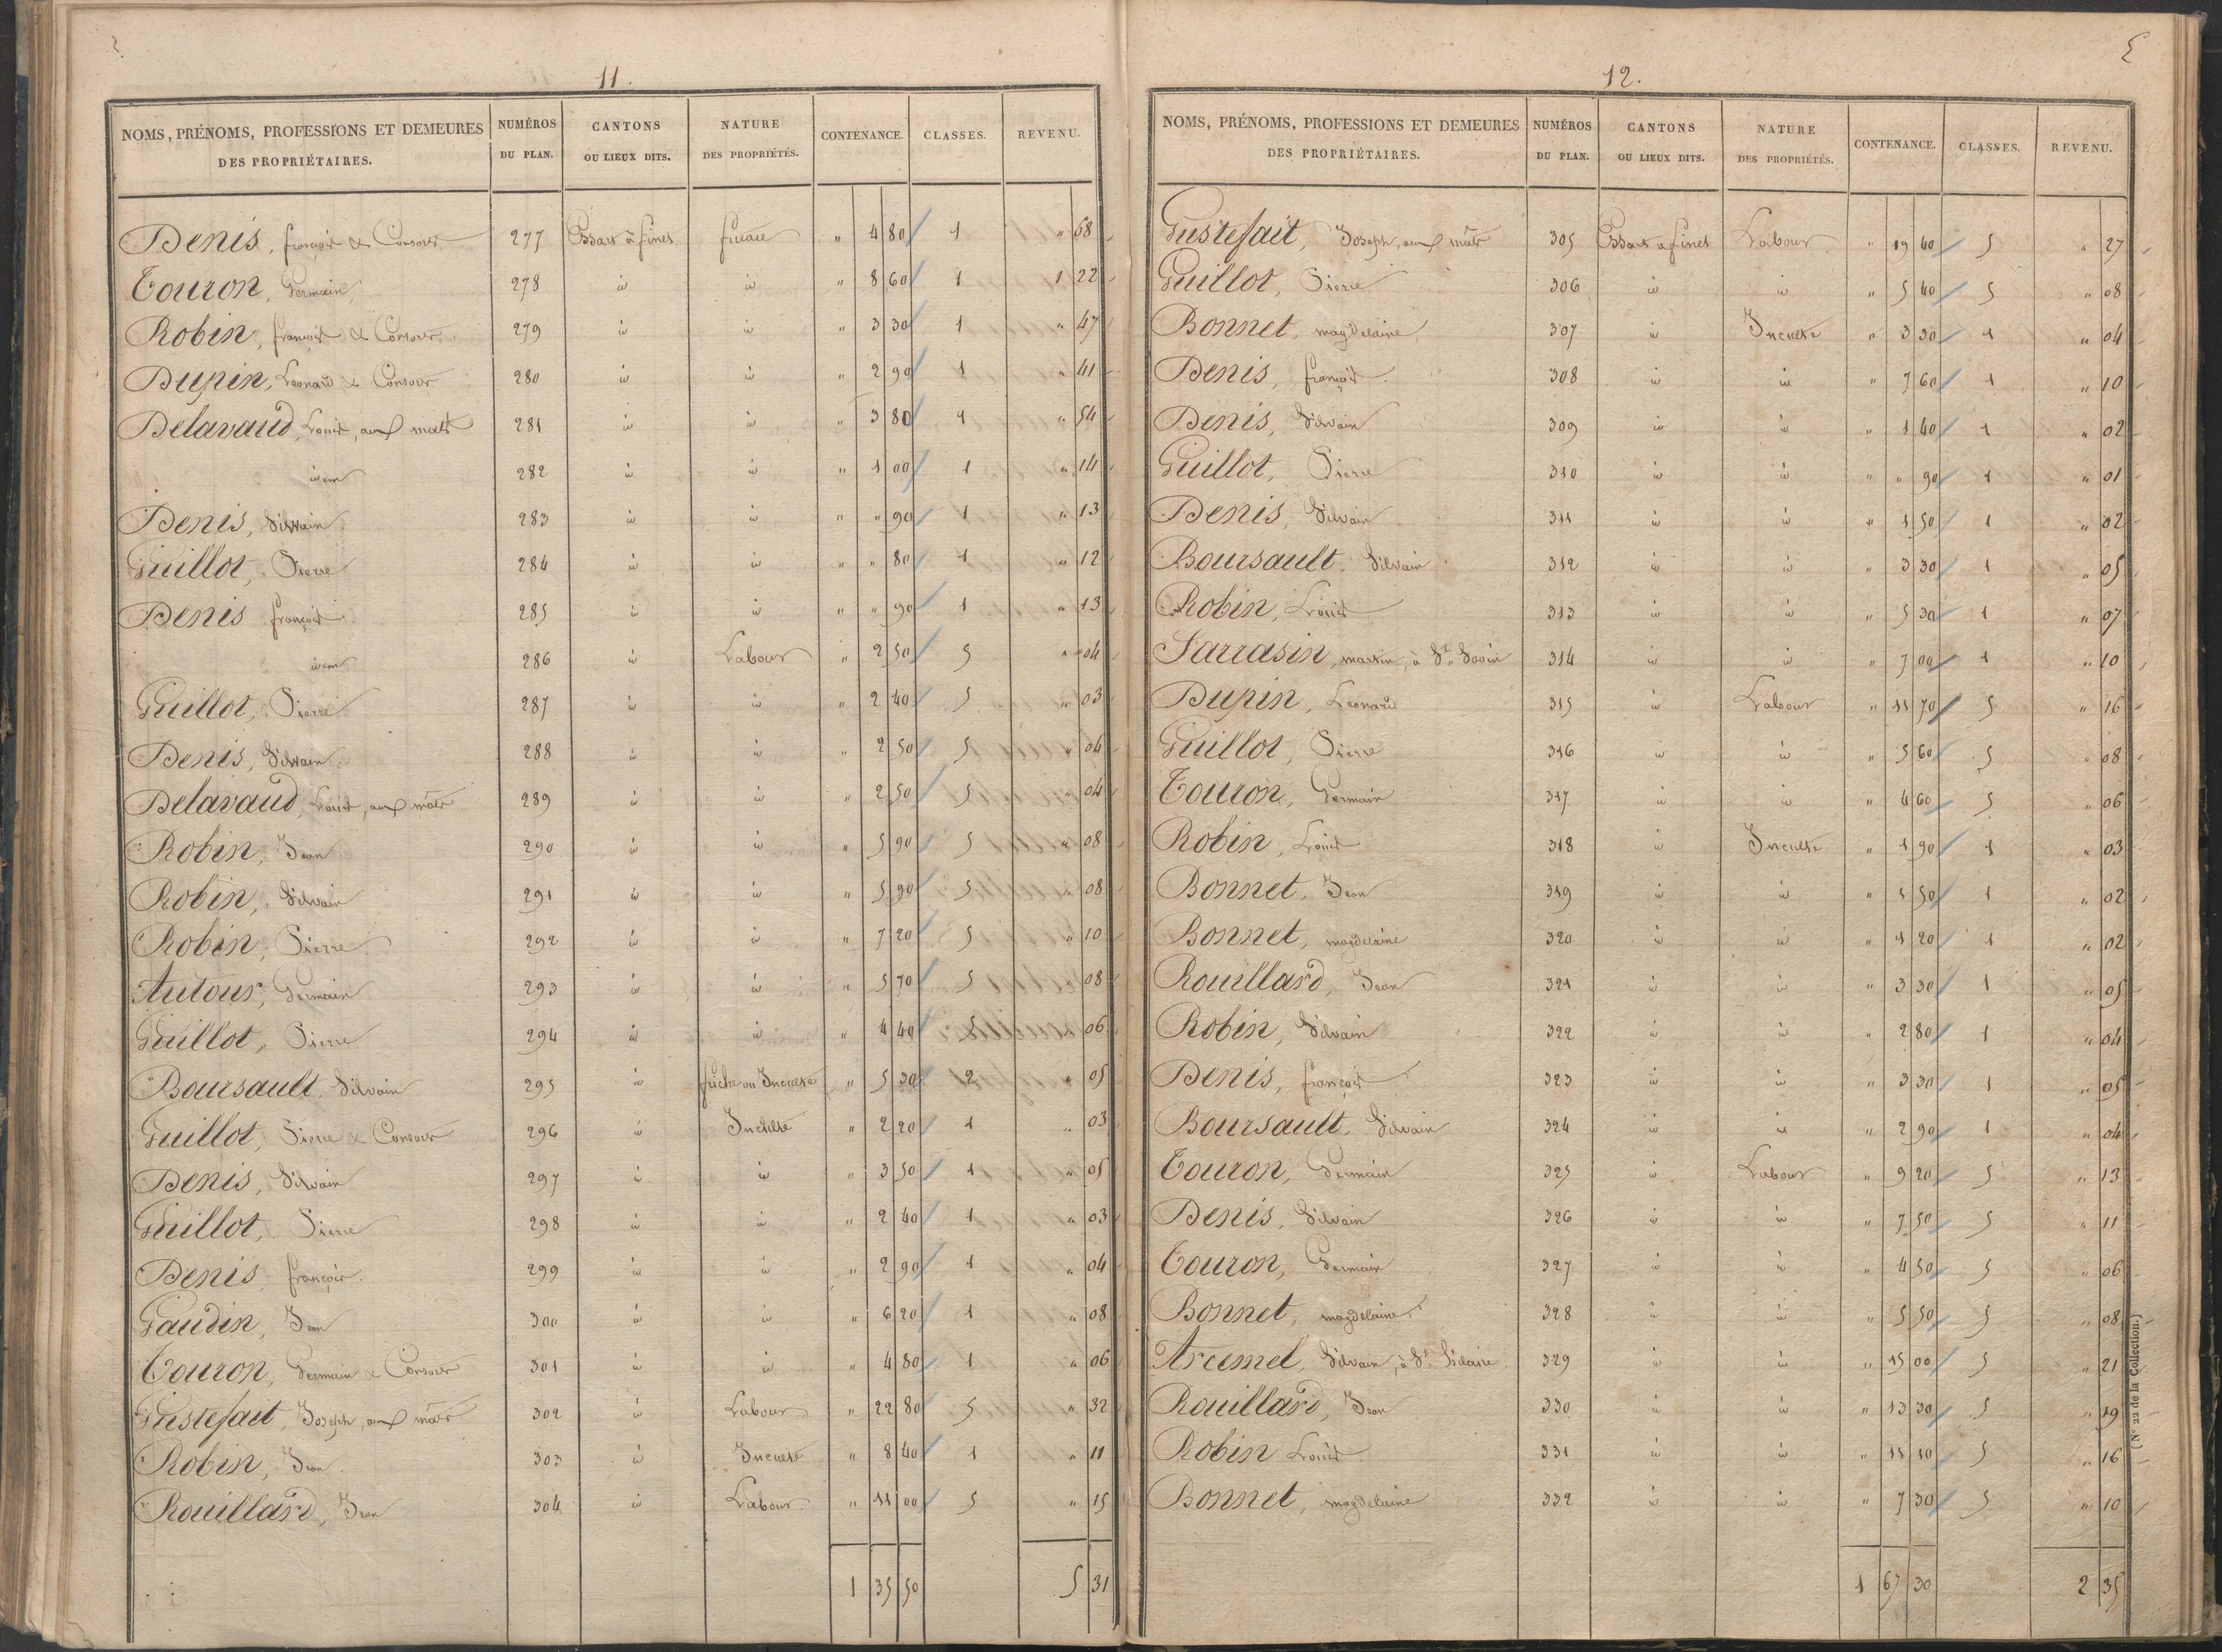 11.
NOMS, PRÉNOMS, PROFESSIONS ET DEMEURES DES PROPRIÉTAIRES. NUMÉROS DU PLAN. CANTONS OU LIEUX DITS. NATURE DES PROPRIÉTÉS. CONTENANCE. CLASSES. REVENU.
Denis, françois & Consors 277 Essart à fines " 4 80 1 " 68
Touron, Germain 278 id id " 8 60 1 1 22
Robin, françois & Consors 279 id id " 3 30 1 " 47
Dupin, Leonard & Consors 280 id id " 2 90 1 " 41
Delavaud, Louis, aux mats 281 id id " 3 80 1 " 54
idem 282 id id " 1 00 1 " 14
Denis, Silvain 283 id id " " 90 1 " 13
Guillot, Pierre 284 id id " " 80 1 " 12
Denis françois 285 id id " " 90 1 " 13
idem 286 id Labour " 2 50 5 " 04
Guillot, Pierre 287 id id " 2 40 5 " 03
Denis, Silvain 288 id id " 2 50 5 " 04
Delavaud, Louis, aux mats 289 id id " 2 50 5 " 04
Robin, Jean 290 id id " 5 90 5 " 08
Robin, Silvain 291 id id " 5 90 5 " 08
Robin, Pierre 292 id id " 7 20 5 " 10
Autour, Germain 293 id id " 5 70 5 " 08
Guillot, Pierre 294 id id " 4 40 5 " 06
Boursault, Silvain 295 id friche ou Inculte " 5 30 2 " 05
Guillot, Pierre & Consors 296 id Inculte " 2 20 1 " 03
Denis, Silvain 297 id id " 3 50 1 " 05
Guillot, Pierre 298 id id " 2 40 1 " 03
Denis françois 299 id id " 2 90 1 " 04
Gaudin, Jean 300 id id " 6 20 1 " 08
Touron, Germain & Consors 301 id id " 4 80 1 " 06
Gustefait, Joseph, aux mats 302 id Labour " 22 80 5 " 32
Robin, Jean 303 id Inculte " 8 40 1 " 11
Rouillard, Jean 304 id Labour " 11 00 5 " 15
1 35 50 5 31
12.
NOMS, PRÉNOMS, PROFESSIONS ET DEMEURES DES PROPRIÉTAIRES. NUMÉROS DU PLAN. CANTONS OU LIEUX DITS. NATURE DES PROPRIÉTÉS. CONTENANCE. CLASSES. REVENU.
Gustefait, Joseph, aux mats 305 Essart à fines Labour " 19 40 5 " 27
Guillot, Pierre 306 id id " 5 40 5 " 08
Bonnet, magdelaine 307 id Inculte " 3 30 1 " 04
Denis, françois 308 id id " 7 60 1 " 10
Denis, Silvain 309 id id " 1 40 1 " 02
Guillot, Pierre 310 id id " " 90 1 " 01
Denis, Silvain 311 id id " 1 50 1 " 02
Boursault, Silvain 312 id id " 3 30 1 " 05
Robin, Louis 313 id id " 5 30 1 " 07
Sarrasin, martin, à St. Savin 314 id id " 7 00 1 " 10
Dupin, Leonard 315 id Labour " 11 70 5 " 16
Guillot, Pierre 316 id id " 5 60 5 " 08
Touron, Germain 317 id id " 4 60 5 " 06
Robin, Louis 318 id Inculte " 1 90 1 " 03
Bonnet, Jean 319 id id " 1 50 1 " 02
Bonnet, magdelaine 320 id id " 1 20 1 " 02
Rouillard, Jean 321 id id " 3 30 1 " 05
Robin, Silvain 322 id id " 2 80 1 " 04
Denis, françois 323 id id " 3 30 1 " 05
Boursault, Silvain 324 id id " 2 90 1 " 04
Touron, Germain 325 id Labour " 9 20 5 " 13
Denis, Silvain 326 id id " 7 50 5 " 11
Touron, Germain 327 id id " 4 50 5 " 06
Bonnet, magdelaine 328 id id " 5 50 5 " 08
Arcemel, Silvain, à St. hilaire 329 id id " 15 00 5 " 21
Rouillard, Jean 330 id id " 13 30 5 " 19
Robin Louis 331 id id " 11 10 5 " 16
Bonnet, magdelaine 332 id id " 7 30 5 " 10
1 67 30 2 35
(N° 22 de la Collection.)